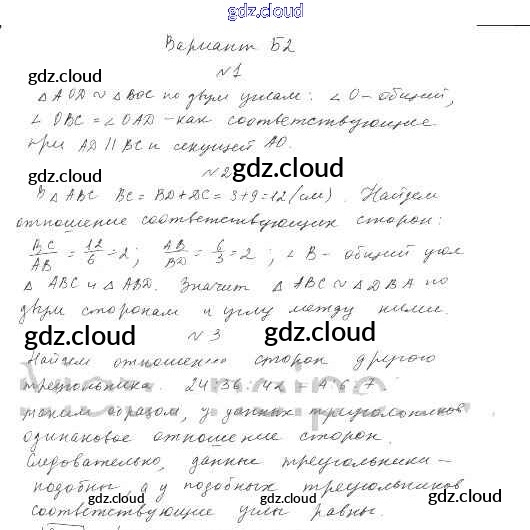 gdz.cloud
Вариант Б2
№1
gdz.cloud
△AOD ~ △BOC по двум углам: ∠O - общий,
∠OBC = ∠OAD - как соответствующие
при AD || BC и секущей AO.
№2
gdz.cloud
gdz.cloud
В △ABC BC = BD + DC = 3+9 = 12 (см). Найдем
отношение соответствующих сторон:
BC/AB = 12/6 = 2; AB/BD = 6/3 = 2; ∠B - общий угол
△ABC и △ABD. Значит △ABC ~ △DBA по
двум сторонам и углу между ними.
gdz.cloud
№3
gdz.cloud
Найдем отношению сторон другого
треугольника. 24:36:42 = 4:6:7
таким образом, у данных треугольников
одинаковое отношение сторон.
Следовательно, данные треугольники -
подобны, а у подобных треугольников
соответствующие углы равны.
gdz.cloud
gdz.cloud
gdz.cloud